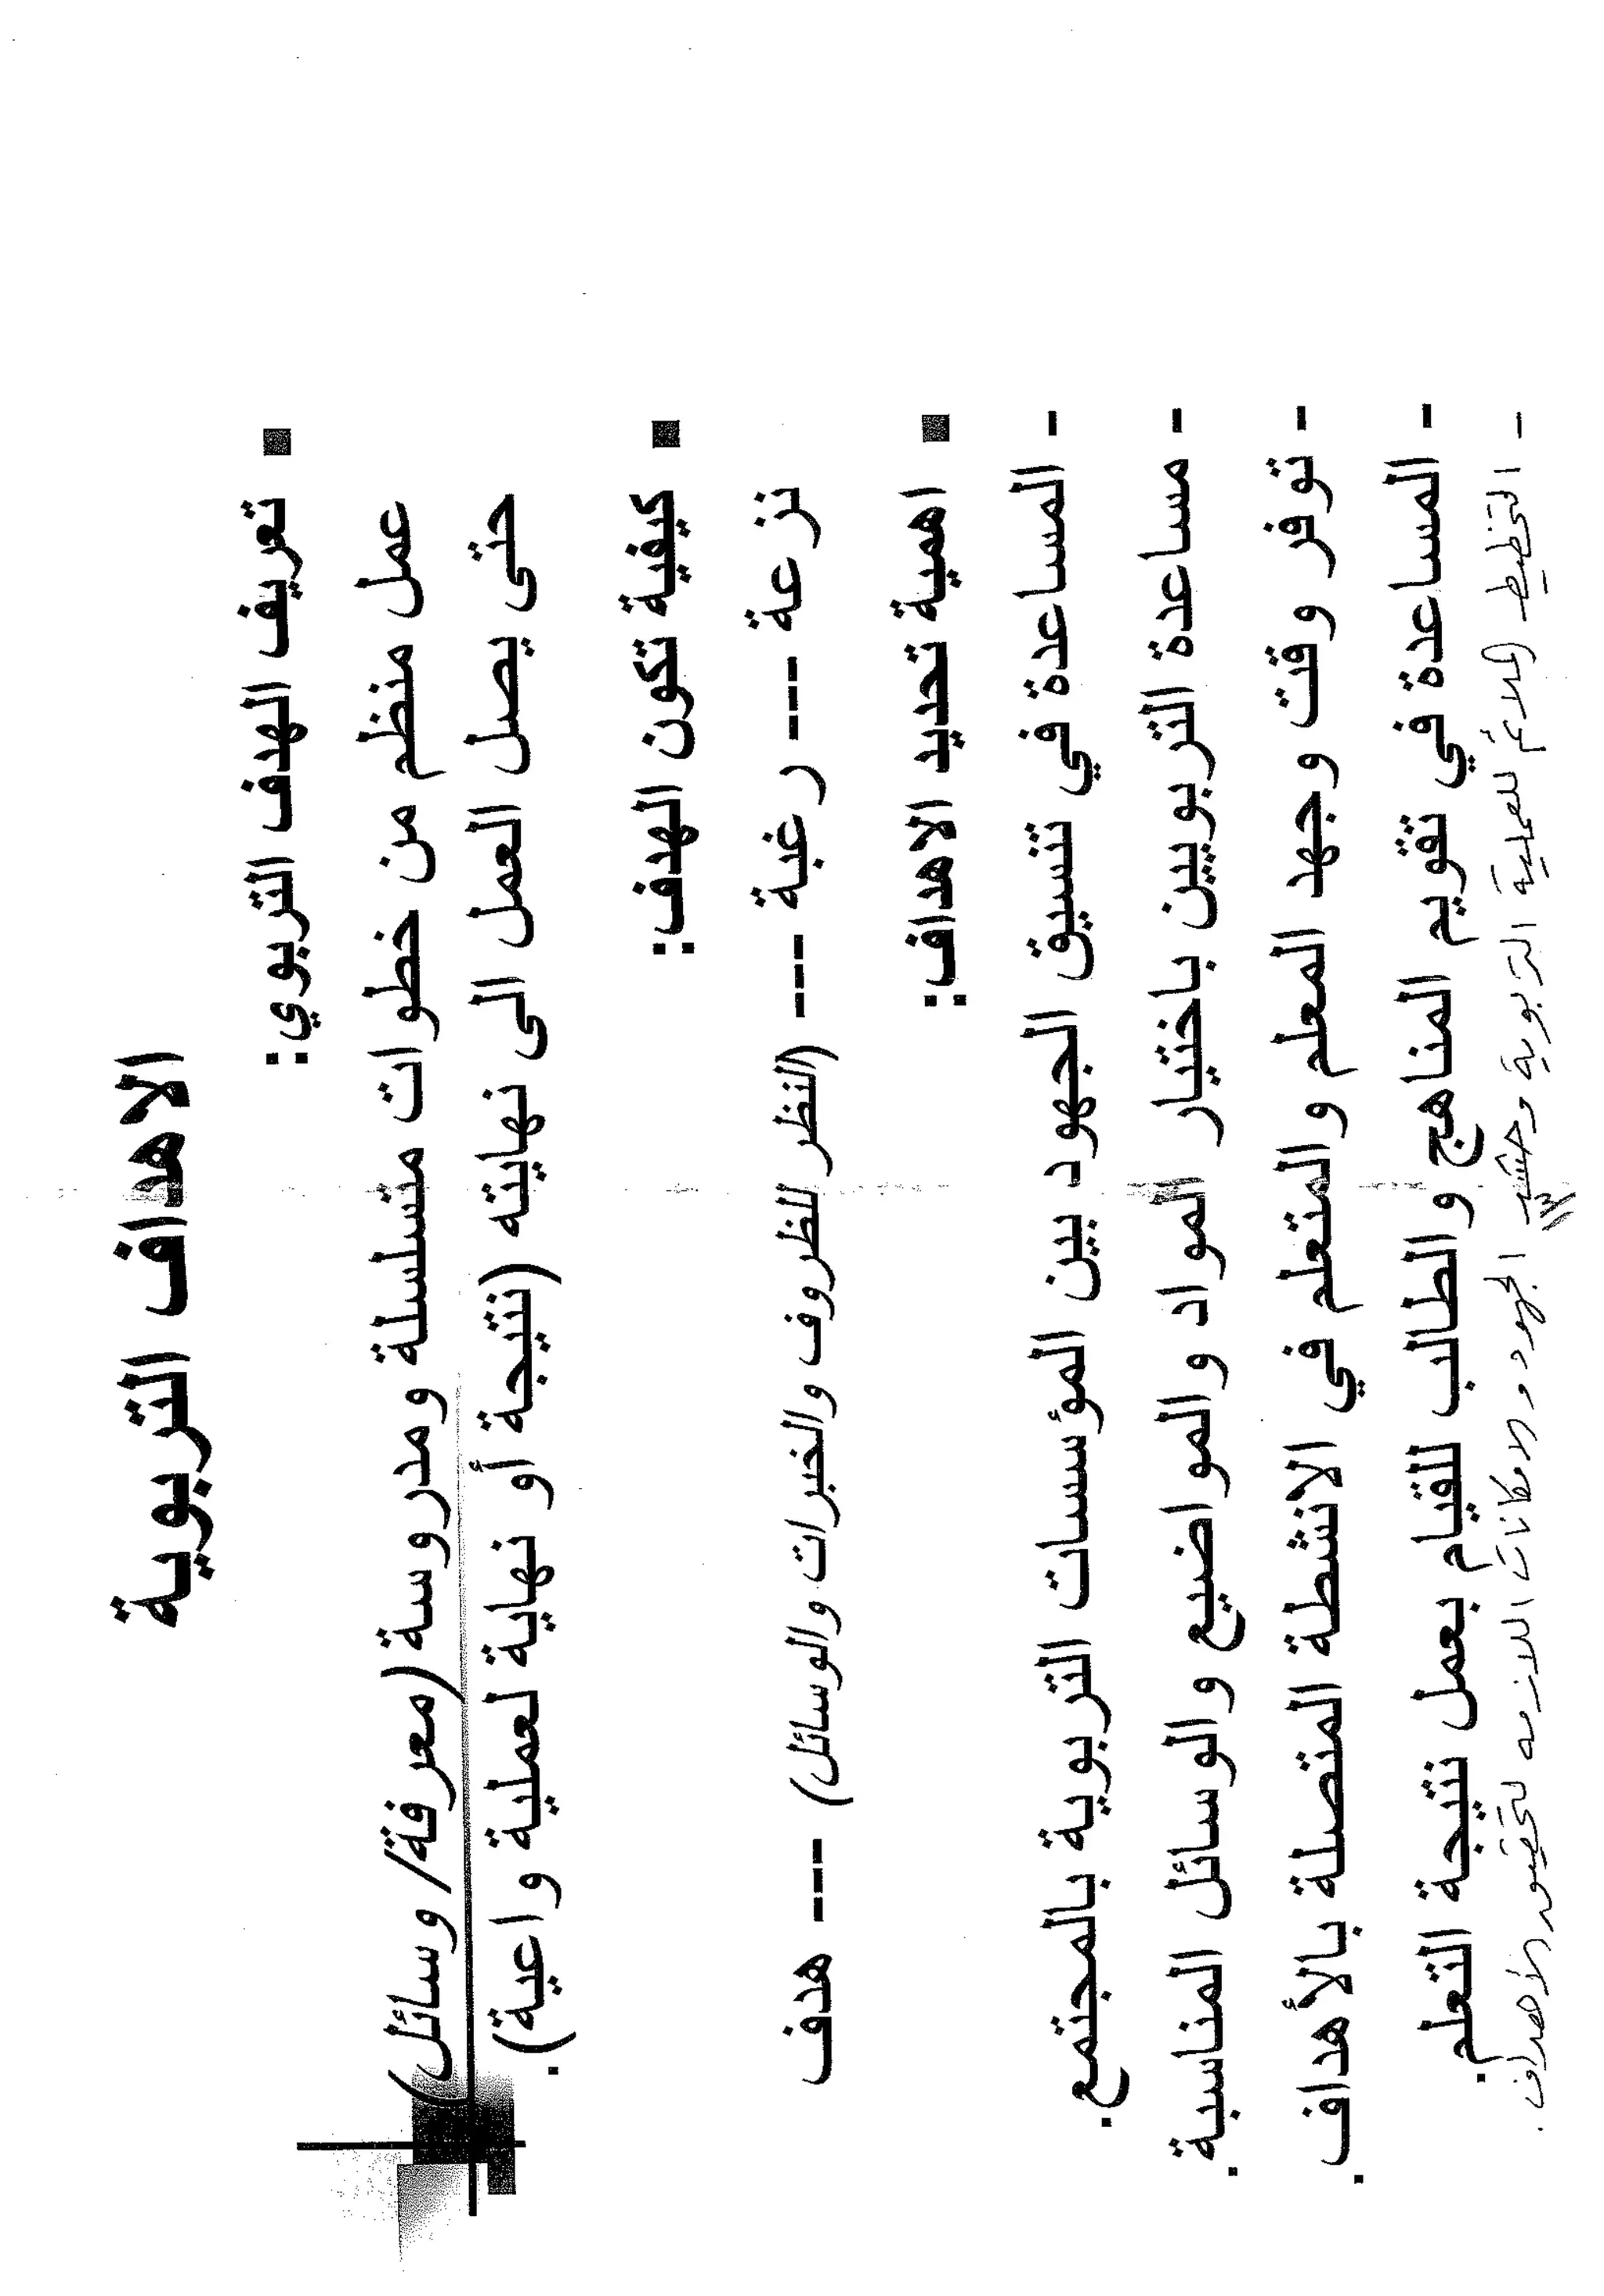 الاهداف التربوية
▪ تعريف الهدف التربوي:
عمل منظم من خطوات متسلسلة ومدروسة (معرفة/ وسائل)
حتى يصل العمل الى نهايته (نتيجة أو نهاية لعملية واعية).
▪ كيفية تكون الهدف:
نزعة --- رغبة --- (النظر للظروف والخبرات والوسائل) --- هدف
▪ اهمية تحديد الاهداف:
- المساعدة في تنسيق الجهود بين المؤسسات التربوية بالمجتمع.
- مساعدة التربويين باختيار المواد والمواضيع والوسائل المناسبة.
- توفر وقت وجهد المعلم والمتعلم في الانشطة المتصلة بالأهداف.
- المساعدة في تقويم المناهج والطالب للقيام بعمل نتيجة التعلم.
- التخطيط الملائم للعملية التربوية وحشد الجهود والامكانات اللازمه لتحقيق الأهداف.